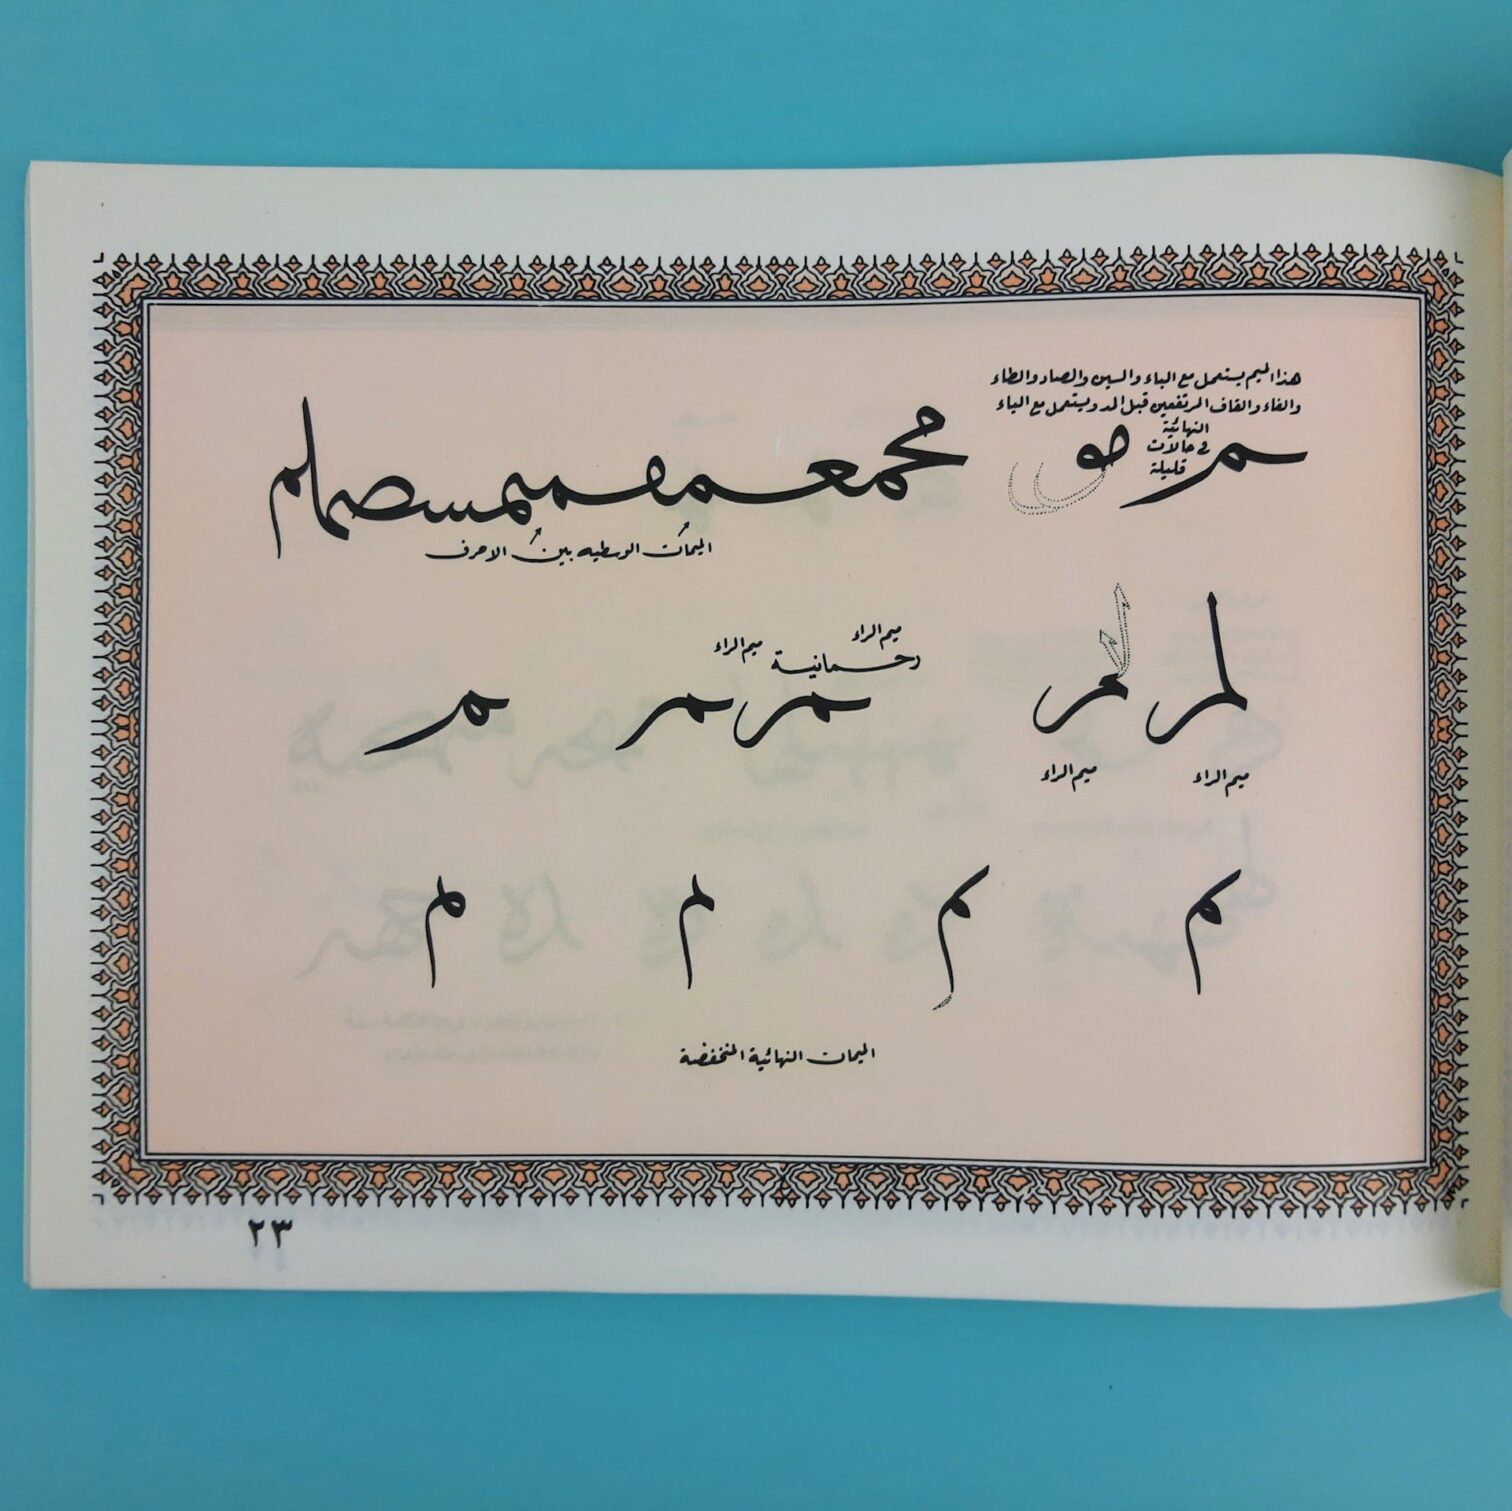 هذا الميم يستعمل مع الباء والسين والصاد والطاء
والفاء والقاف المرتفعين قبل المد ويستعمل مع الياء
النهائية
في حالات
قليلة
الميمات الوسطيه بين الاحرف
ميم الراء
رحمانية
ميم الراء
مر
لمر
ميم الراء
ميم الراء
م م م م
الميمات النهائية المنخفضة
٢٣